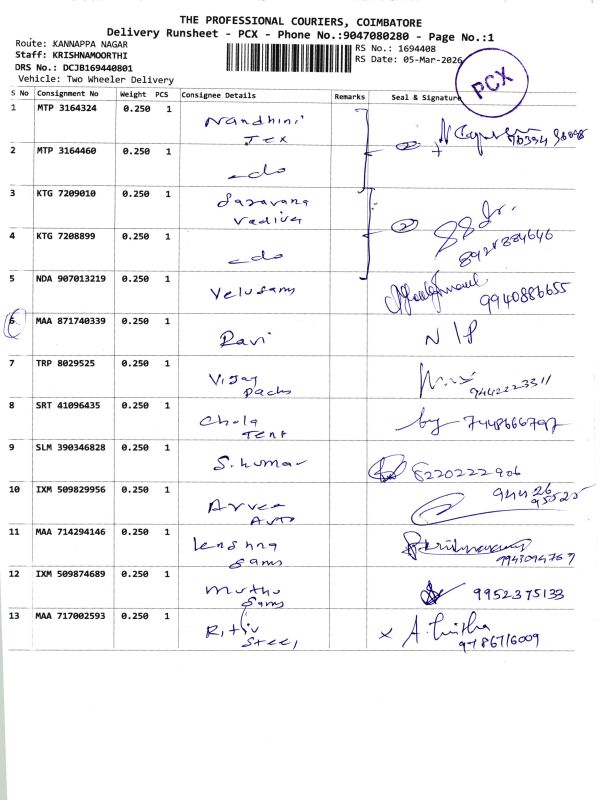 THE PROFESSIONAL COURIERS, COIMBATORE
Delivery Runsheet - PCX - Phone No.:9047080280 - Page No.:1
Route: KANNAPPA NAGAR
Staff: KRISHNAMOORTHI
DRS No.: DCJB169440801
Vehicle: Two Wheeler Delivery
RS No.: 1694408
RS Date: 05-Mar-2026
PCX
S No Consignment No Weight PCS Consignee Details Remarks Seal & Signature
1 MTP 3164324 0.250 1 Nandhini
Tex
2 MTP 3164460 0.250 1 do
3 KTG 7209010 0.250 1 Saravana
Vadivel
4 KTG 7208899 0.250 1 do
5 NDA 907013219 0.250 1 Velusamy 9940886655
6 MAA 871740339 0.250 1 Ravi N/P
7 TRP 8029525 0.250 1 Vijay
Packs 9442223311
8 SRT 41096435 0.250 1 Chola
Tent 7448666797
9 SLM 390346828 0.250 1 S. Kumar 8220222906
10 IXM 509829956 0.250 1 Arvee
Auto 94426
95525
11 MAA 714294146 0.250 1
Samy 9943094767
12 IXM 509874689 0.250 1 Muthu
Samy 9952375133
13 MAA 717002593 0.250 1
Steel x 9786716009